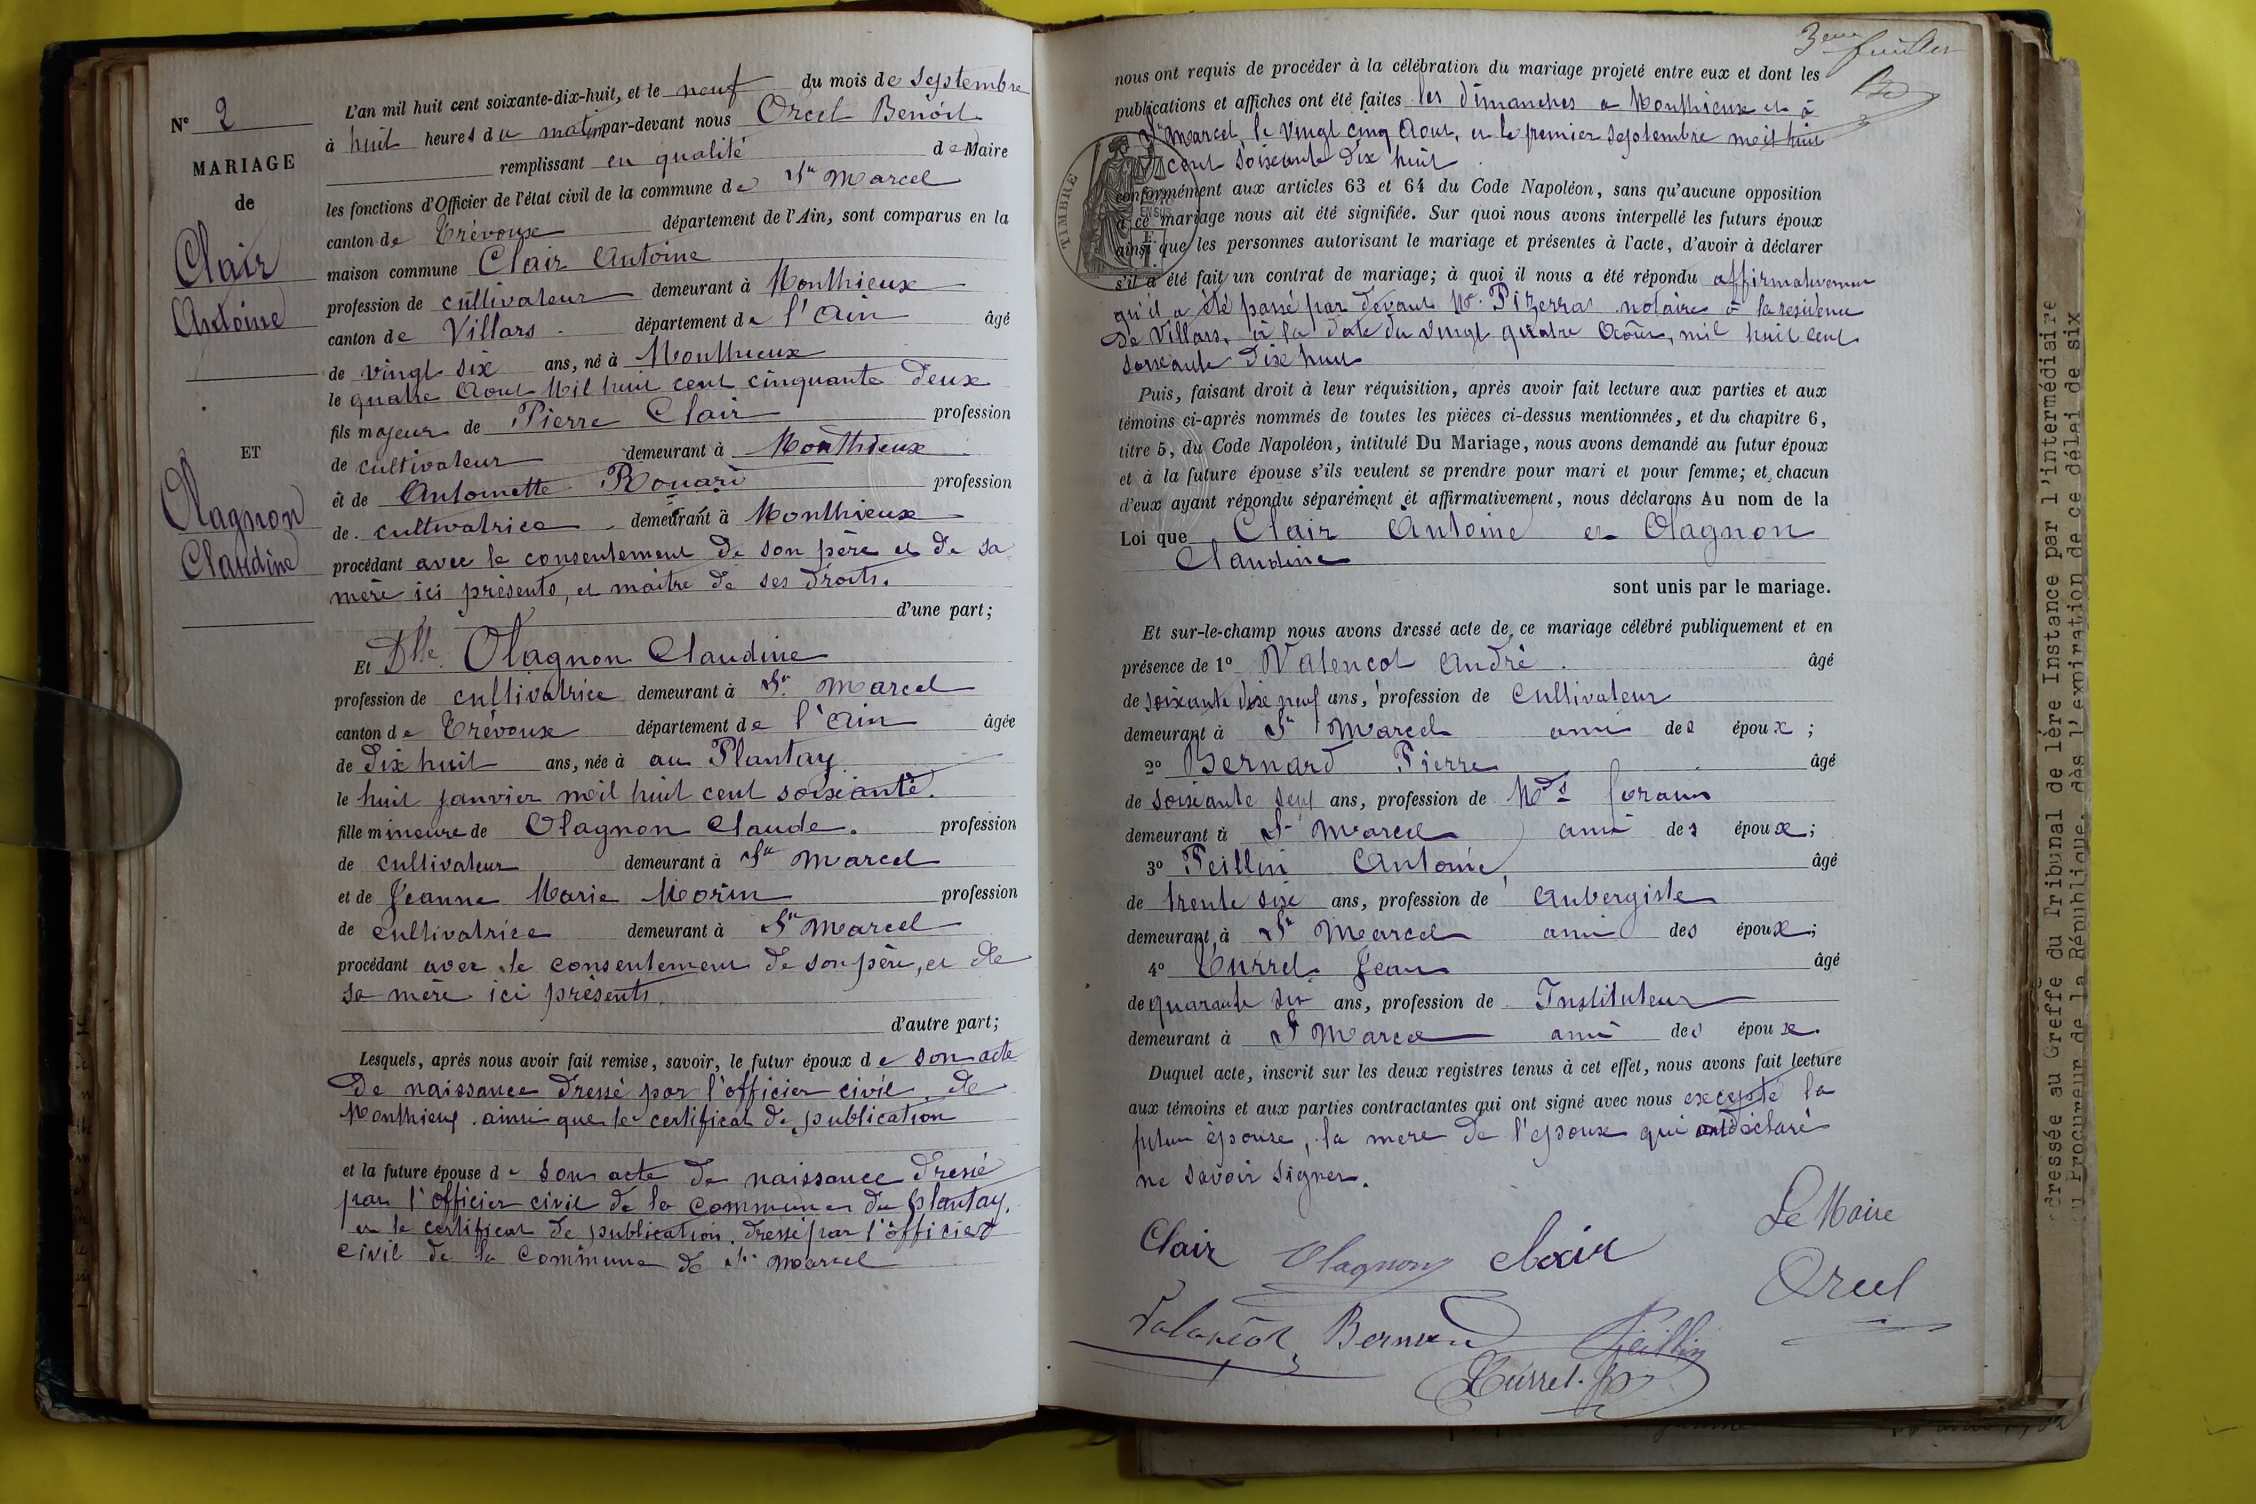 N° 2
MARIAGE
de
Clair
Antoine
ET
Olagnon
Claudine
L'an mil huit cent soixante-dix-huit, et le neuf du mois de Septembre
à huit heures du matin par-devant nous Orcel Benoit
remplissant en qualité de Maire
les fonctions d'Officier de l'état civil de la commune de St Marcel
canton de Trévoux département de l'Ain, sont comparus en la
maison commune Clair Antoine
profession de cultivateur demeurant à Monthieux
canton de Villars département de l'Ain âgé
de vingt six ans, né à Monthieux
le quatre Aout Mil huit cent cinquante deux
fils majeur de Pierre Clair profession
de cultivateur demeurant à Monthieux
et de Antoinette profession
de cultivatrice demeurant à Monthieux
procédant avec le consentement de son père et de sa
mère ici présents, et maitre de ses droits.
d'une part;
Et Dlle Olagnon Claudine
profession de cultivatrice demeurant à St Marcel
canton de Trévoux département de l'Ain âgée
de dix huit ans, née à au Plantay
le huit janvier mil huit cent soixante.
fille mineure de Olagnon Claude. profession
de cultivateur demeurant à St Marcel
et de Jeanne Marie Morin profession
de cultivatrice demeurant à St Marcel
procédant avec le consentement de son père, et de
sa mère ici présents.
d'autre part;
Lesquels, après nous avoir fait remise, savoir, le futur époux de son acte
de naissance dressé par l'officier civil de
Monthieux ainsi que le certificat de publication
et la future épouse de son acte de naissance dressé
par l'officier civil de la commune du Plantay.
et le certificat de publication dressé par l'officier
civil de la commune de St Marcel
3eme feuillet
nous ont requis de procéder à la célébration du mariage projeté entre eux et dont les
publications et affiches ont été faites les dimanches à Monthieux et à
St Marcel le vingt cinq Aout, et le premier Septembre mil huit
cent soixante dix huit
TIMBRE
conformément aux articles 63 et 64 du Code Napoléon, sans qu'aucune opposition
à ce mariage nous ait été signifiée. Sur quoi nous avons interpellé les futurs époux
ainsi que les personnes autorisant le mariage et présentes à l'acte, d'avoir à déclarer
s'il a été fait un contrat de mariage; à quoi il nous a été répondu affirmativement
qu'il a été passé par devant notaire à la résidence
de Villars, à la date du vingt quatre Aout, mil huit cent
soixante dix huit
Puis, faisant droit à leur réquisition, après avoir fait lecture aux parties et aux
témoins ci-après nommés de toutes les pièces ci-dessus mentionnées, et du chapitre 6,
titre 5, du Code Napoléon, intitulé Du Mariage, nous avons demandé au futur époux
et à la future épouse s'ils veulent se prendre pour mari et pour femme; et, chacun
d'eux ayant répondu séparément et affirmativement, nous déclarons Au nom de la
Loi que Clair Antoine et Olagnon
Claudine
sont unis par le mariage.
Et sur-le-champ nous avons dressé acte de ce mariage célébré publiquement et en
présence de 1° Valencot André âgé
de soixante dix neuf ans, profession de cultivateur
demeurant à St Marcel ami des époux;
2° Bernard Pierre âgé
de soixante ans, profession de Md forain
demeurant à St Marcel ami des époux;
3° Peillin Antoine, âgé
de trente six ans, profession de Aubergiste
demeurant à St Marcel ami des époux;
4° Turrel Jean âgé
de quarante six ans, profession de Instituteur
demeurant à St Marcel ami des époux.
Duquel acte, inscrit sur les deux registres tenus à cet effet, nous avons fait lecture
aux témoins et aux parties contractantes qui ont signé avec nous excepté la
future épouse, la mere de l'époux qui ont déclaré
ne savoir signer.
Clair Olagnon clair Le Maire
Orcel
Valancot Bernard Peillin
Turrel
dressée au Greffe du Tribunal de 1ère Instance par l'intermédiaire
du Procureur de la République, dès l'expiration de ce délai de six